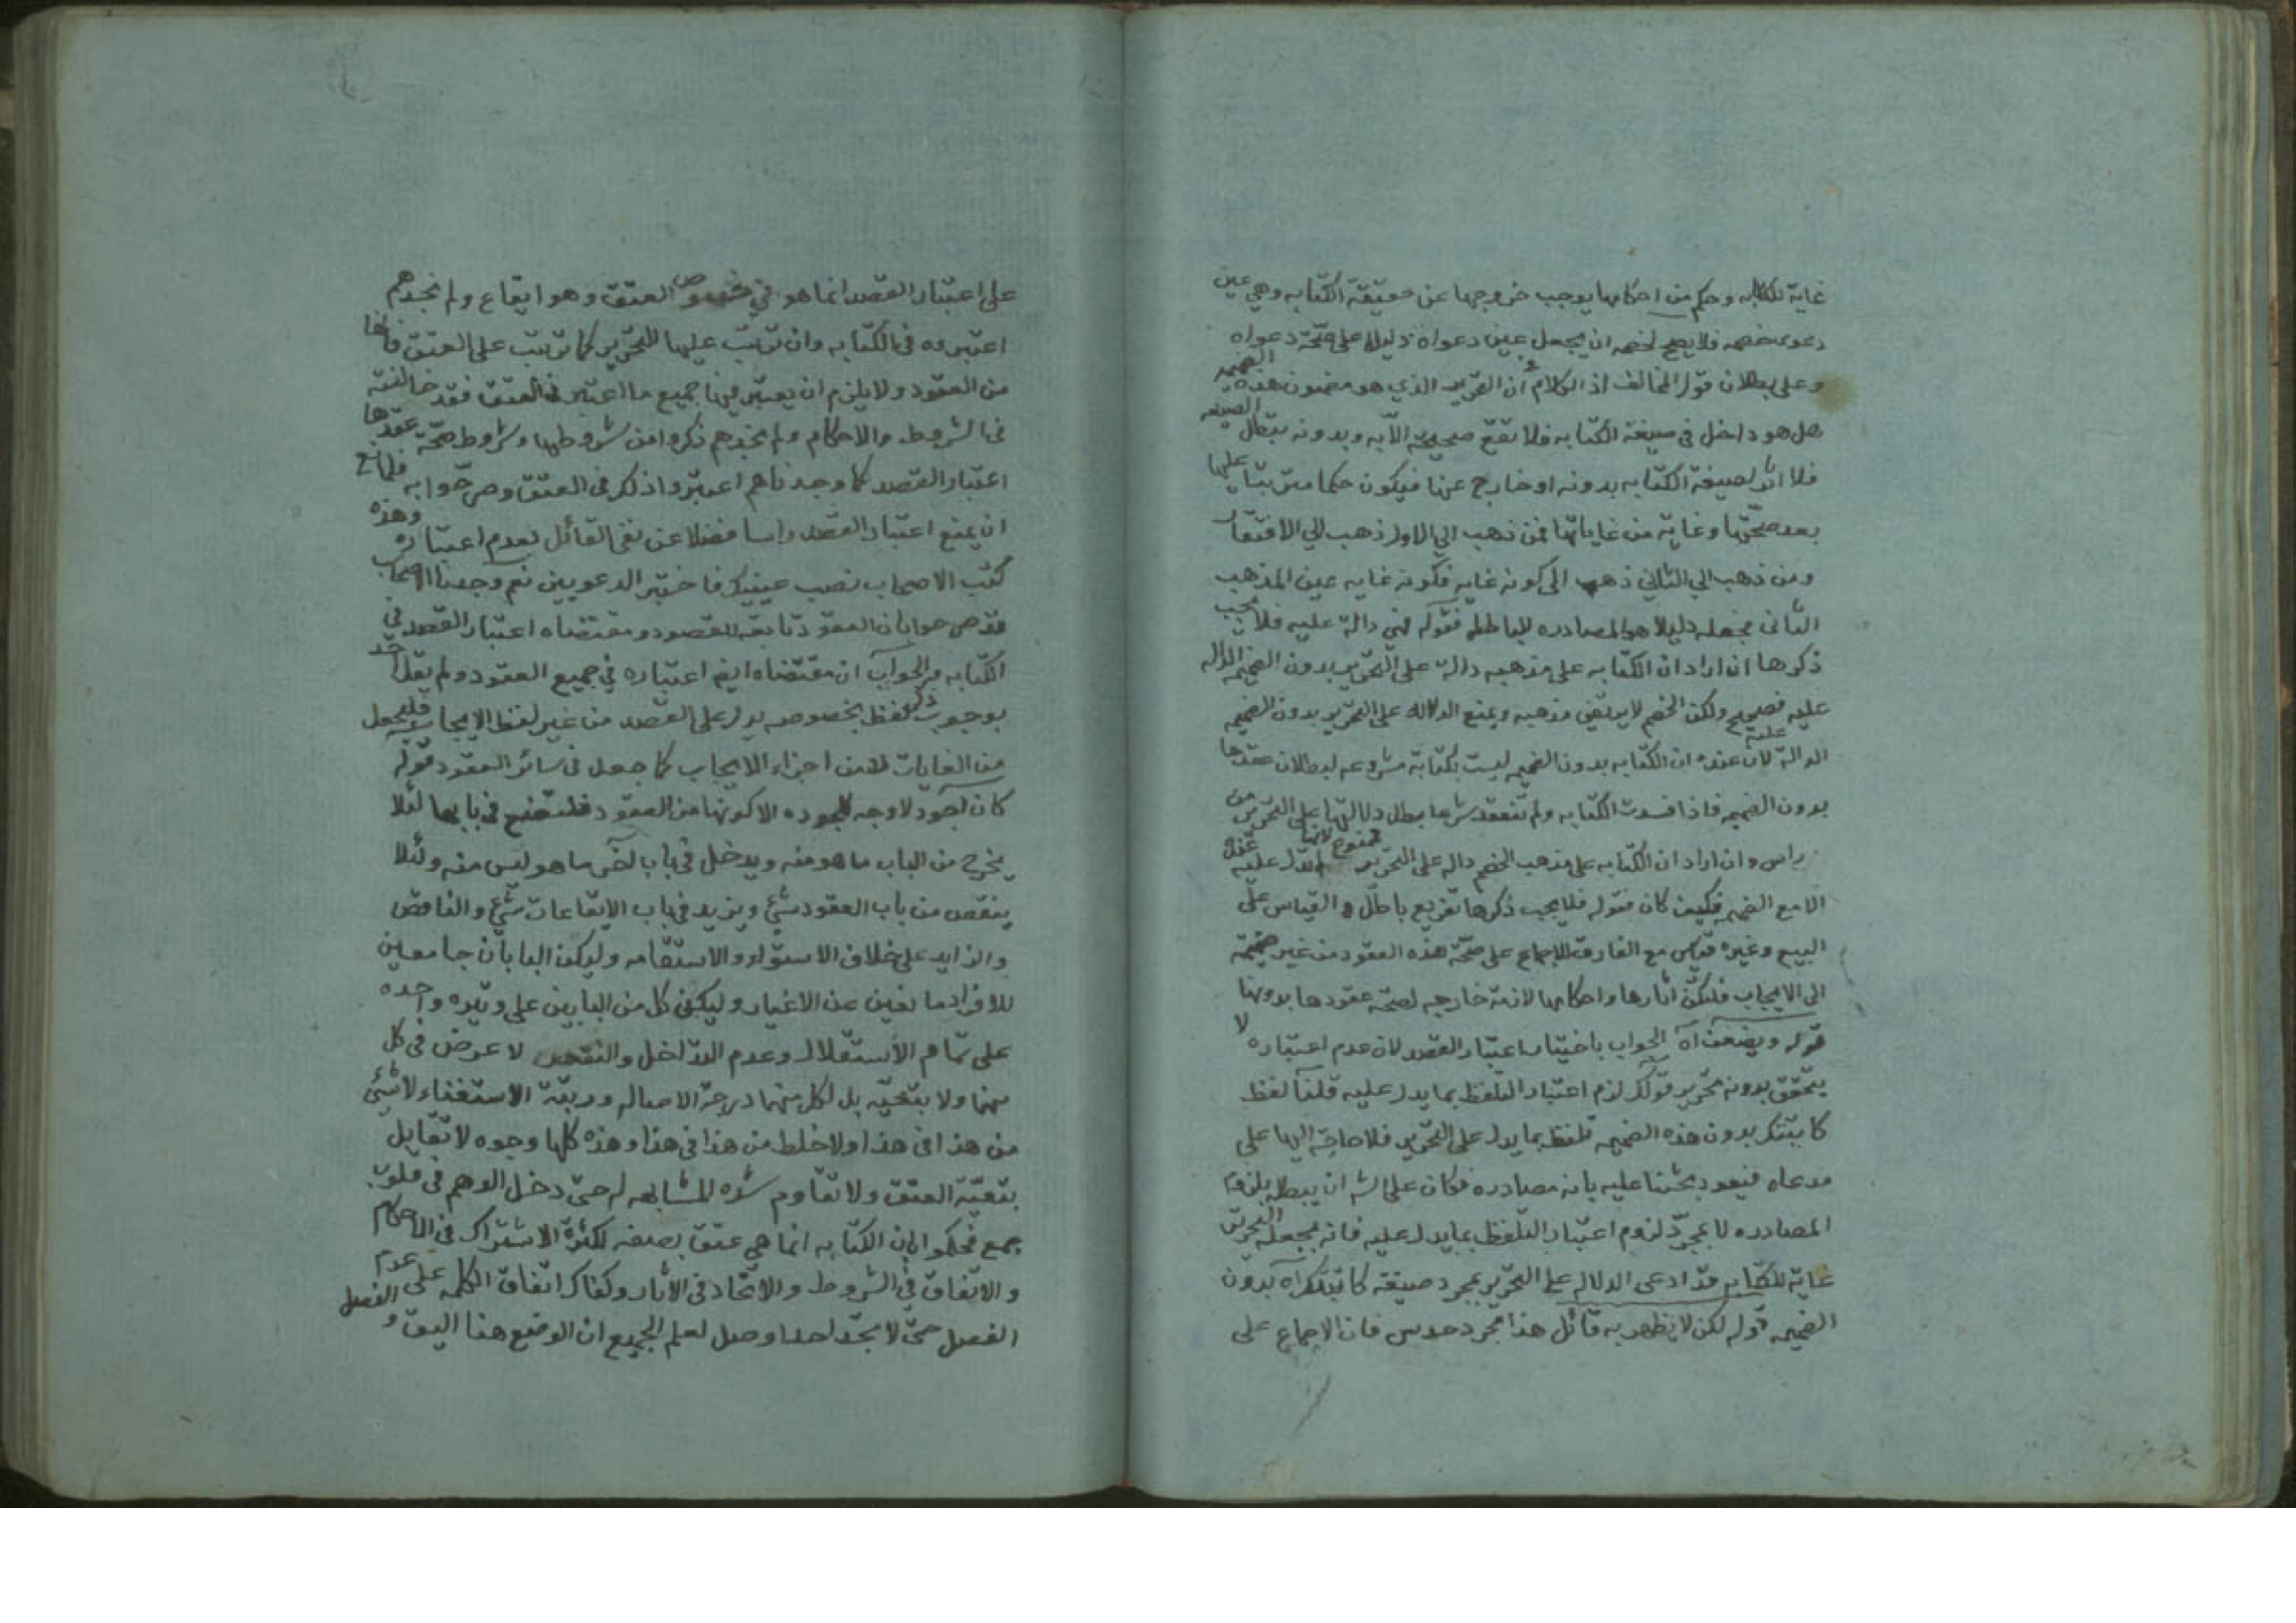 غاية للكتابه وحكم من احكامها يوجب خروجها عن حقيقة الكتابه وهي عين
دعوى خصمه فلا يصح لخصمه ان يجعل عين دعواه دليلا على صحّة دعواه
وعلى بطلان قول المخالف اذ الكلام في ان التحرير الذي هو مضمون هذه الضميمه
هل هو داخل في صيغة الكتابه فلا تقع صحيحة الا به وبدونه تبطل الصيغه
فلا اثر لصيغة الكتابه بدونه او خارج عنها فيكون حكما مترتبا عليها
بعد صحّتها وغاية من غاياتها فمن ذهب الي الاول ذهب الي الافتقار
ومن ذهب الي الثاني ذهب الى كونه غايه فكونه غايه عين المذهب
الثانى فجعله دليلا هو المصادره الباطله فقوله فهي دالة عليه فلا يجب
ذكرها ان اراد ان الكتابه على مذهبه دالة على التحرير بدون الضميمه الداله
عليه فصحيح ولكن الخصم لا يرتضي مذهبه ويمنع الدلاله على التحرير بدون الضميمه
الدالة عليه لان عنده ان الكتابه بدون الضميمه ليست بكتابة مشروعه لبطلان عقدها
بدون الضميمه فاذا فسدت الكتابه ولم تنعقد شرعا بطل دلالتها على التحرير من
راس وان اراد ان الكتابه على مذهب الخصم داله على التحرير فممنوع لانها لا تدل عليه عنده
الا مع الضميمه فكيف كان فقوله فلا يجب ذكرها تفريع باطل والقياس على
البيع وغيره قياس مع الفارق للاجماع على صحّة هذه العقود من غير ضميمة
الى الايجاب فلتكن آثارها واحكامها لازمة خارجيه لصحّة عقودها بدونها
قوله ويضعف اه الجواب باختيار اعتبار القصد لان عدم اعتباره لا
يتحقق بدونه تحرير قولك لزم اعتبار التلفظ بما يدل عليه قلنا لفظ
كاتبتك بدون هذه الضميمه تلفظ بما يدل على التحرير فلا حاجة اليها على
مدعاه فيعود بحثنا عليه بانه مصادره فكان على الشه ان يبطله بلزوم
المصادره لا بمجرّد لزوم اعتبار التلفظ بما يدل عليه فانه بجعله التحرير
غاية للكتابه قد ادعى الدلاله على التحرير بمجرد صيغة كاتبتك اه بدون
الضميمه قوله لكن لا يظهر به قائل هذا مجرد حدس فان الاجماع على
على اعتبار القصد انما هو في خصوص العتق وهو ايقاع ولم نجدهم
اعتبروه فى الكتابه وان ترتب عليها التحرير كما ترتب على العتق فانها
من العقود ولا يلزم ان يعتبر فيها جميع ما اعتبر في العتق فقد خالفته
فى الشروط والاحكام ولم نجدهم ذكروا من شروطها وشروط صحّة عقدها
اعتبار القصد كما وجدناهم اعتبروا ذلك فى العتق وصرّحوا به فلمانع
ان يمنع اعتبار القصد راسا فضلا عن نفى القائل بعدم اعتباره وهذه
كتب الاصحاب نصب عينيك فاختبر الدعويين نعم وجدنا الاصحاب
قد صرحوا بان العقود تابعة للقصود ومقتضاه اعتبار القصد في
الكتابه والجواب ان مقتضاه ايضا اعتباره في جميع العقود ولم يقل احد
بوجوب ذكر لفظ بخصوصه يدل على القصد من غير لفظ الايجاب فليجعل
من الغايات لا من اجزاء الايجاب كما جعل فى سائر العقود قوله
كان اجود لا وجه لجوده الا كونها من العقود فلتوضع في بابها لئلا
يخرج من الباب ما هو منه ويدخل في باب آخر ما هو ليس منه ولئلا
ينقص من باب العقود شئ ويزيد في باب الايقاعات شئ والناقص
والزايد على خلاف الاستواء والاستقامه وليكن البابان جامعين
للافراد مانعين عن الاغيار وليكن كل من البابين على وتيره واحده
على تمام الاستقلال وعدم التداخل والنقص لا عرض في كل
منهما ولا بتبعيّه بل لكل منهما درجة الاصاله ورتبة الاستغناء لا شئ
من هذا فى هذا ولا خلط من هذا في هذا وهذه كلها وجوه لا تقابل
بتبعيّة العتق ولا تقاوم شده المشابهه له حتى دخل الوهم في قلوب
جمع فحكموا بان الكتابه انما هي عتق بصفه لكثرة الاشتراك في الاحكام
والاتفاق في الشروط والاتحاد فى الآثار وكفاك اتفاق الكلمه على عدم الفصل
الفصل حتى لا تجد احدا وصل لعلم الجميع ان الوضع هنا اليق و